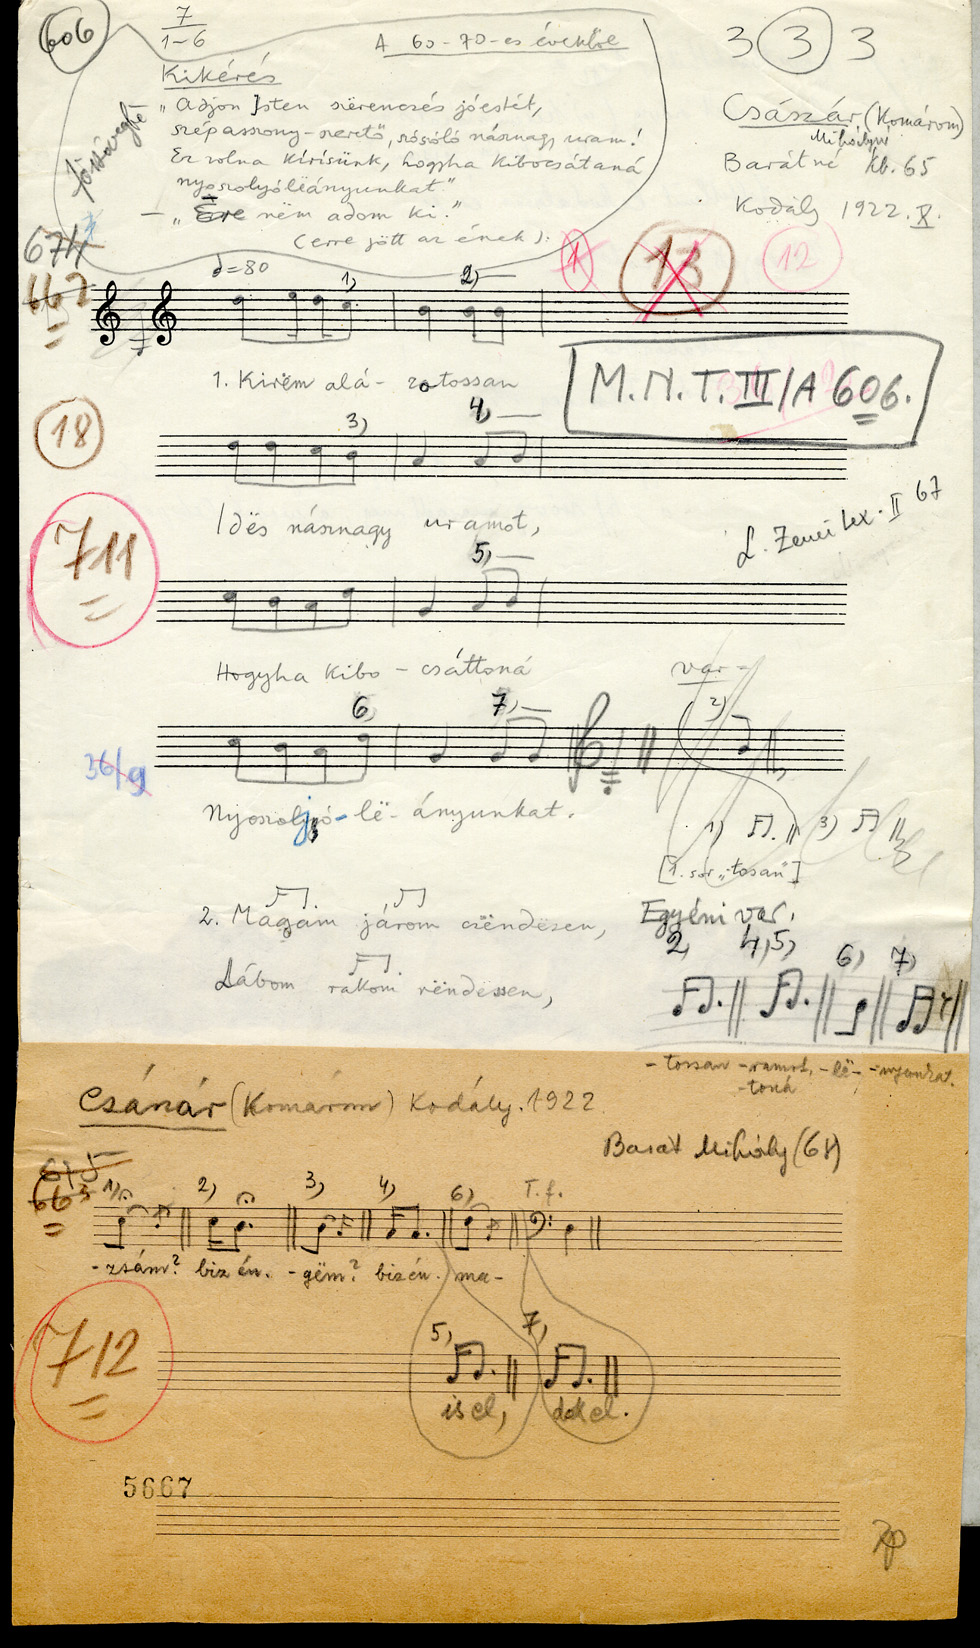 606
7
1-6
A 60-70-es évekből
3 3 3
Kikérés
"Adjon Isten szerencsés jóestét,
szépasszony-szerető, sósóló násznagy uram!
Ez volna kérisünk, hogyha kibocsátaná
nyoszolyólëányunkat"
— " nëm adom ki."
(erre jött az ének):
Császár (Komárom)
Mihályné
Barátné kb. 65
Kodály 1922. X.
674
667
♩=80
1) 2)
1 13 12
1. Kirëm alá- zotossan
M.N.T. III/A 606.
18
3) 4)
Idës násznagy uramot,
L. Zenei Lex. II 67
711
5)
Hogyha kibo - csáttoná
var
6) 7)
2)
36/9
Nyoszolyjó- lë- ányunkat.
1) 3)
[1. sor "tosan"]
2. Magam járom csëndessen,
Egyéni var.
2, 4,5, 6) 7)
Lábom rakom rëndessen,
- tossan - ramot, - lë- - nyunkat.
- toná
Császár (Komárom) Kodály. 1922
Barát Mihály (68)
675
663
1) 2) 3) 4) 6) T.f.
- zsám? biz én. - gëm? bizén. ma-
712
5) 7)
is el,
5667